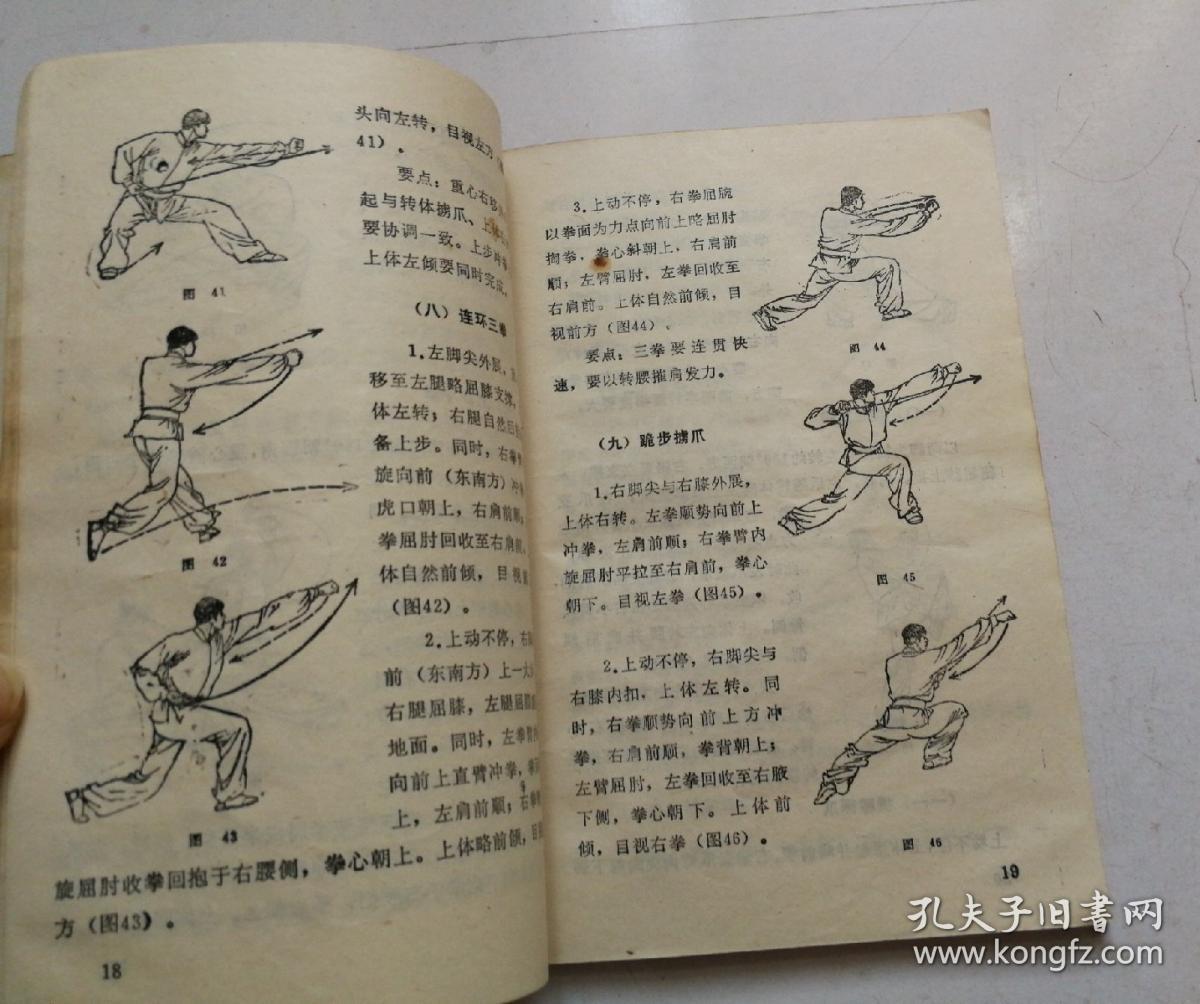 头向左转，目视左方
41）。
要点：重心右移
起与转体掳爪、上
要协调一致。上步冲拳
上体左倾要同时完成。
图 41
（八）连环三拳
1.左脚尖外展，
移至左腿略屈膝支撑，
体左转；右腿自然后
备上步。同时，右拳
旋向前（东南方）冲
虎口朝上，右肩前顺；
拳屈肘回收至右肩前
体自然前倾，目视前
（图42）。
图 42
2.上动不停，右
前（东南方）上一大
右腿屈膝，左腿屈膝
地面。同时，左拳
向前上直臂冲拳，拳
上，左肩前顺；右拳
图 43
旋屈肘收拳回抱于右腰侧，拳心朝上。上体略前倾，目
方（图43）。
18
3.上动不停，右拳屈腕
以拳面为力点向前上略屈肘
掏拳，拳心斜朝上，右肩前
顺；左臂屈肘，左拳回收至
右肩前。上体自然前倾，目
视前方（图44）、
要点：三拳要连贯快
速，要以转腰摧肩发力。
图 44
（九）跪步掳爪
1.右脚尖与右膝外展，
上体右转。左拳顺势向前上
冲拳，左肩前顺；右拳臂内
旋屈肘平拉至右肩前，拳心
朝下。目视左拳（图45）。
图 45
2.上动不停，右脚尖与
右膝内扣，上体左转。同
时，右拳顺势向前上方冲
拳，右肩前顺，拳背朝上；
左臂屈肘，左拳回收至右腋
下侧，拳心朝下。上体前
倾，目视右拳（图46）。
图 46
19
孔夫子旧书网
www.kongfz.com